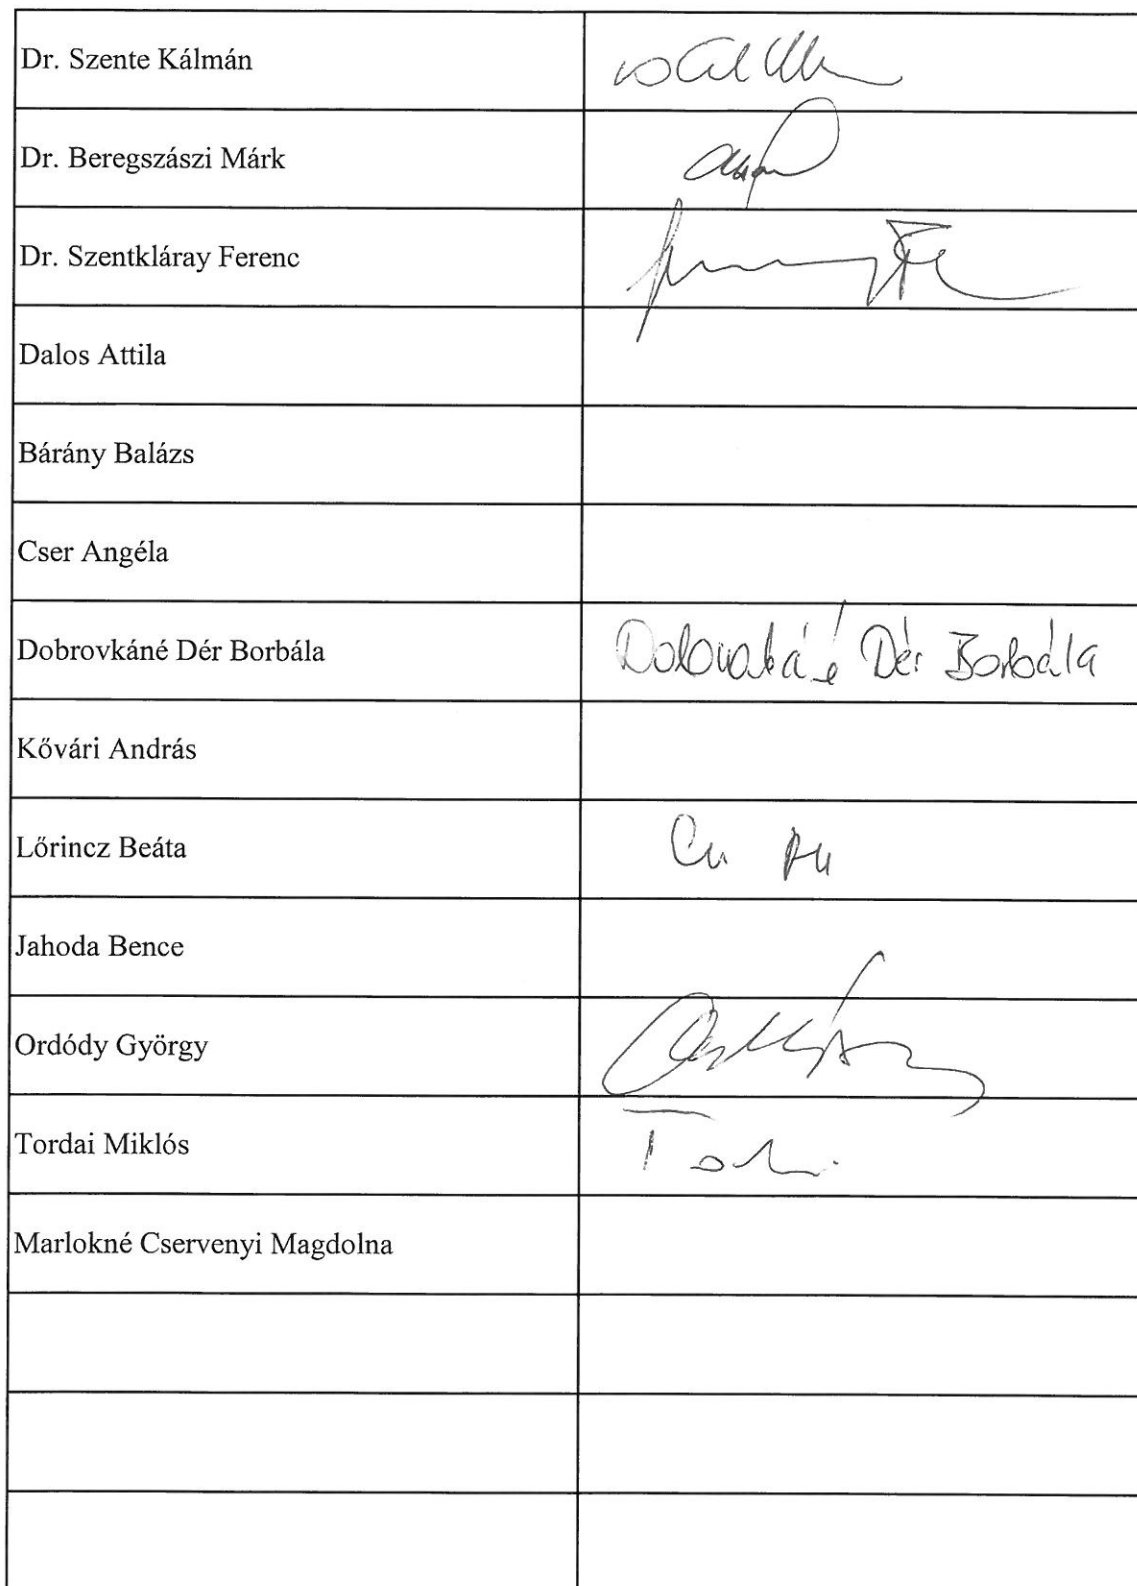 Dr. Szente Kálmán
Dr. Beregszászi Márk
Dr. Szentkláray Ferenc
Dalos Attila
Bárány Balázs
Cser Angéla
Dobrovkáné Dér Borbála Dobrovkáné Dér Borbála
Kővári András
Lőrincz Beáta
Jahoda Bence
Ordódy György
Tordai Miklós
Marlokné Cservenyi Magdolna